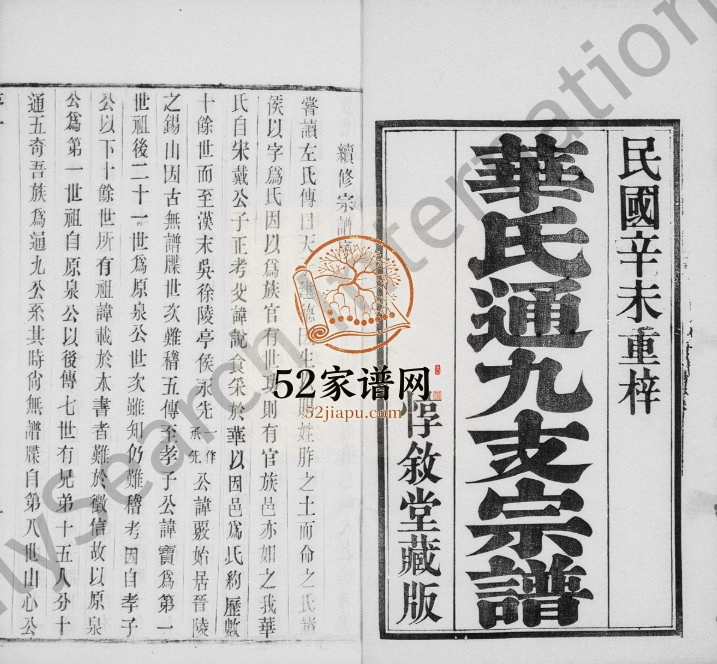 民國辛未重梓
華氏通九支宗譜
惇敘堂藏版
續修宗譜
嘗讀左氏傳曰天
賜姓胙之土而命之氏諸
侯以字爲氏因以爲族官有世功則有官族邑亦如之我華
氏自宋戴公子正考父諱說食采於華以因邑爲氏約歷數
十餘世而至漢末吳徐陵亭侯永先一作承先公諱覈始居晉陵
之錫山因古無譜牒世次難稽五傳至孝子公諱寶爲第一
世祖後二十一世爲原泉公世次雖知仍難稽考因自孝子
公以下十餘世所有祖諱載於本書者難於徵信故以原泉
公爲第一世祖自原泉公以後傳七世有兄弟十五人分十
通五奇吾族爲通九公系其時尙無譜牒自第八世山心公
52家谱网
52jiapu.com
MySearch International